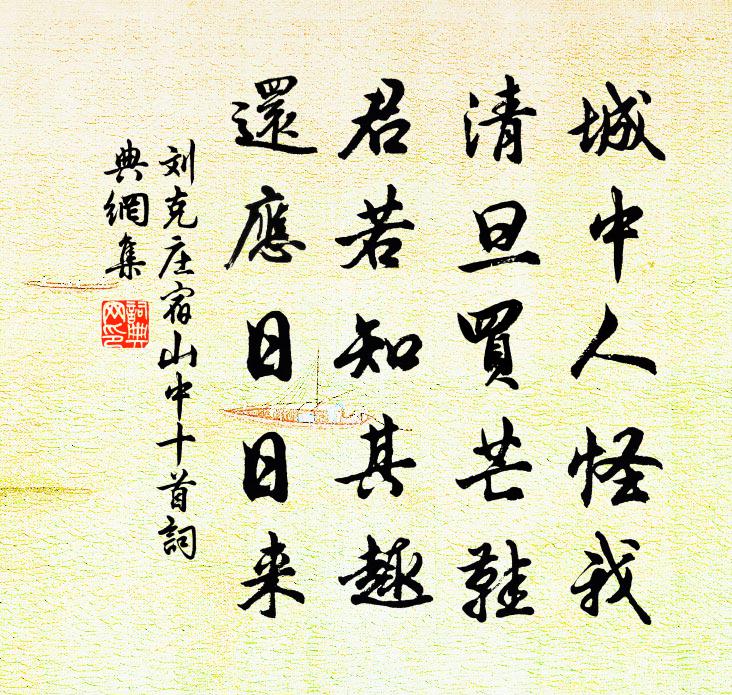 城中人怪我
清旦買芒鞋
君若知其趣
還應日日来
刘克庄宿山中十首詞
典網集
詞典网印